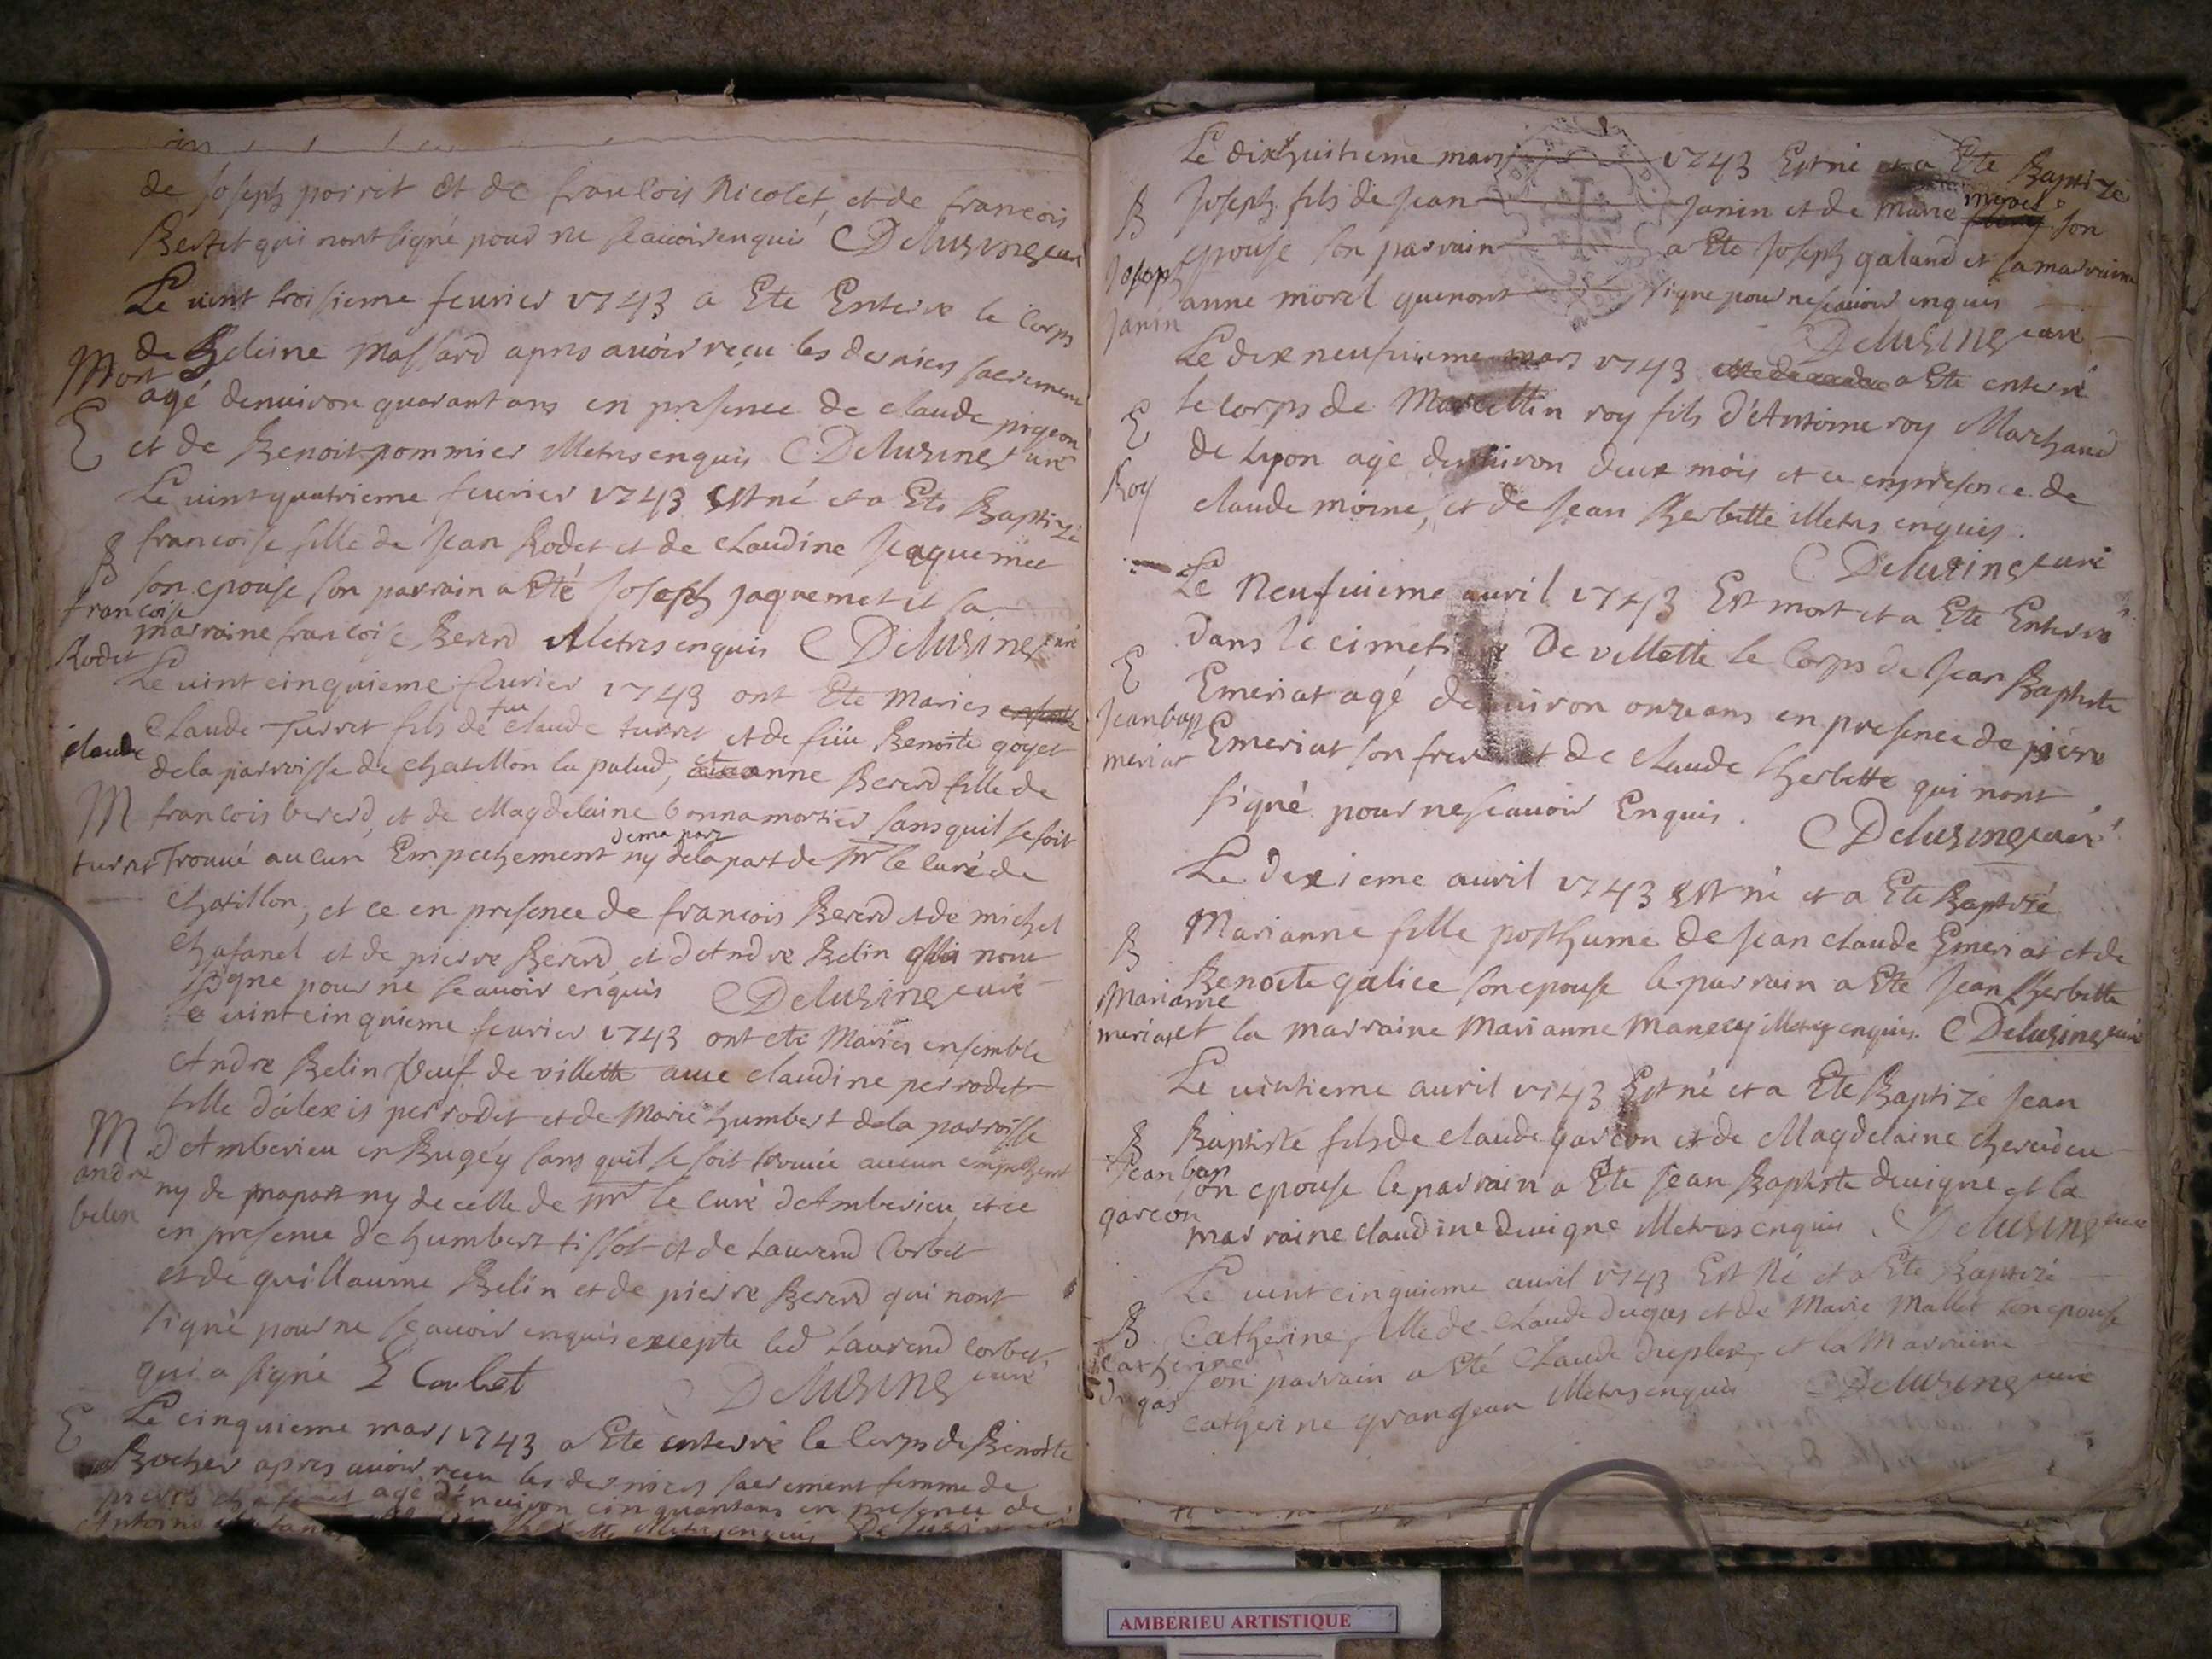 de Joseph porret et de francois Nicolet, et de francois
Bertet qui nont signé pour ne scauoir enquis Delusinge curé
Le uint troisieme feurier 1743 a Ete Enterré le corps
de Heleine Massard apres auoir reçu les derniers sacrement
Mort
agé denuiron quarant ans en presence de claude pigeon
E
et de Benoit pommier illetres enquis Delusinge curé
Le uint quatrieme feurier 1743 Est né et a Ete Baptizé
B
francoise fille de Jean Rodet et de claudine Jaquemet
francoise
Rodet
son epouse son parrain a Eté Joseph jaquemet et sa
marraine francoise Bererd illetres enquis Delusinge curé
Le uint cinquieme feurier 1743 ont Ete Maries
claude
Claude Turret fils de feu claude turret et de füe Benoite goyet
dela parroisse de chatillon la palud, et anne Bererd fille de
M
francois bererd, et de Magdelaine bonnamortier sans quil se soit
turret
Trouué aucun Empechement ny de ma part ny dela part de mr le curé de
chatillon, et ce en presence de francois Bererd et de michel
chafanel et de pierre Bererd, et d'Andre Belin qui nont
signe pour ne scauoir enquis Delusinge curé
Le uint cinquieme feurier 1743 ont ete Mariés ensemble
Andre Belin veuf de villette auec claudine perrodet
fille d'alexis perrodet et de Marie humbert dela parroisse
M
d'Amberieu en Bugey sans quil se soit trouué aucun empechement
andre
belin
ny de ma part ny de celle de mr le curé d'Amberieu, et ce
en presence de humbert tissot et de Laurend Corbet
et de guillaume Belin et de pierre Bererd qui nont
signé pour ne scauoir enquis excepte led Laurend Corbet,
qui a signé L Corbet Delusinge curé
E
Le cinquieme mars 1743 a Ete enterré le Corps de Benoite
Rocher apres auoir reçu les derniers sacrement femme de
pierre chafanel agé denuiron cinquant ans en presence de
Antoine illetres enquis Delusinge
Le dixhuitieme mars 1743 Est né et a Ete Baptizé
B
Joseph fils de Jean Janin et de Marie morel son
Joseph
Janin
epouse son parrain a Ete Joseph galand et sa marraine
anne morel qui nont signe pour ne scauoir enquis
Delusinge curé
Le dix neufuieme mars 1743 a Ete enterré
E
le corps de Marcellin roy fils d'Antoine roy Marchand
Roy
de Lyon agé denuiron deux mois et ce en presence de
claude moine, et de Jean Herbette illetres enquis.
Delusinge curé
Le Neufuieme auril 1743 Est mort et a Ete Enterré
dans le cimetiere De villette le Corps de Jean Baptiste
E
Jean bap
meriat
Emeriat agé denuiron onze ans en presence de pierre
Emeriat son frere et de claude Herbette qui nont
signé pour ne scauoir Enquis. Delusinge curé
Le dixieme auril 1743 Est né et a Ete Baptizé
B
Marianne fille posthume de Jean claude Emeriat et de
Marianne
meriat
Benoite galice son epouse le parrain a Ete Jean Herbette
et la marraine Marianne Manecy illetres enquis. Delusinge curé
Le uintieme auril 1743 Est né et a Ete Baptizé Jean
B
Jean bap
garcon
Baptiste fils de claude garcon et de Magdelaine
son epouse le parrain a Ete Jean Baptiste deuigne et la
marraine claudine Deuigne illetres enquis Delusinge curé
Le uint cinquieme auril 1743 Est Né et a Ete Baptizé
B
Catherine
dugas
Catherine, fille de claude dugas et de Marie Mallet son epouse
son parrain a Eté Claude duplex, et la Marraine
catherine grangean illetres enquis Delusinge curé
AMBERIEU ARTISTIQUE